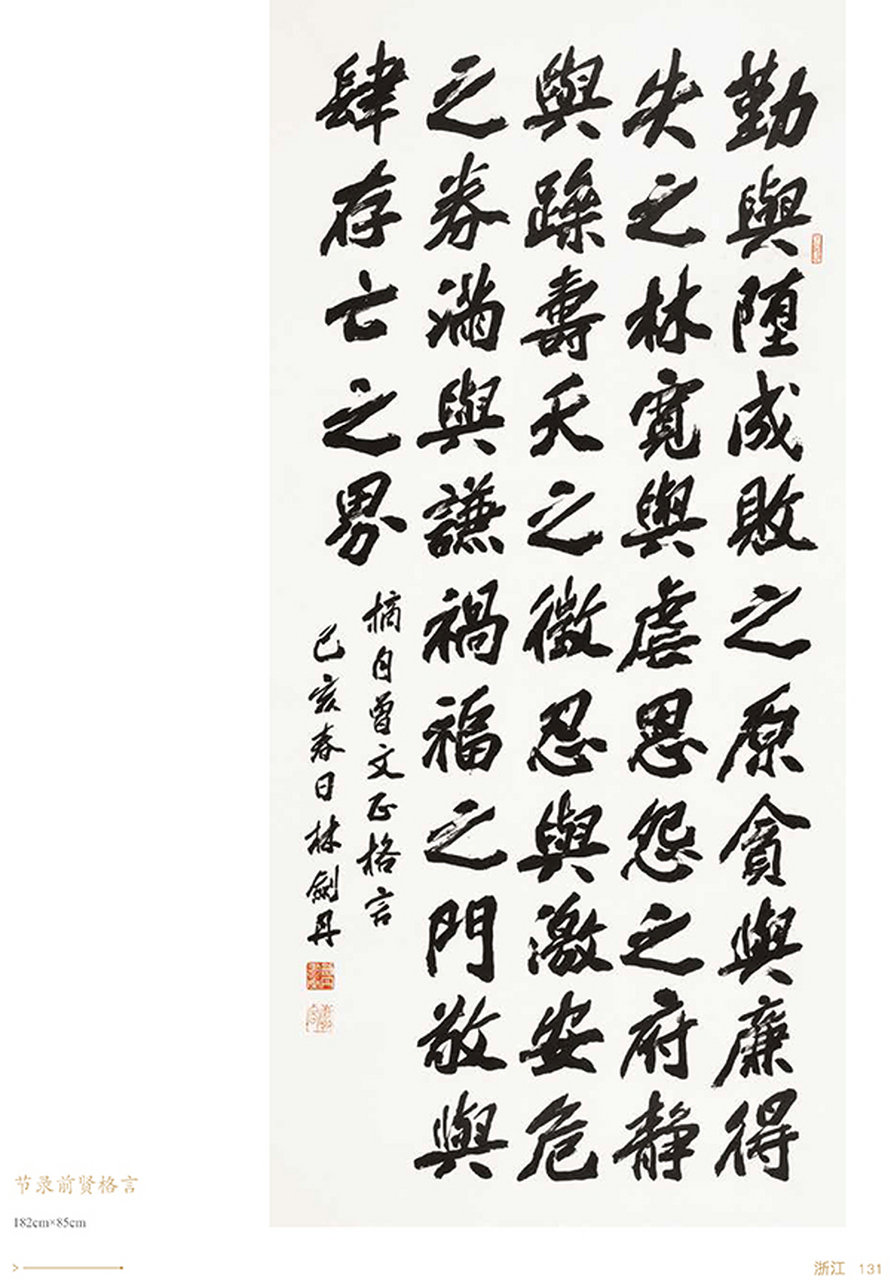 勤與堕成敗之原貪與廉得
失之林寬與虐恩怨之府静
與躁壽夭之徵忍與激安危
之券滿與謙禍福之門敬與
肆存亡之界
摘自曾文正格言
己亥春日林劍丹
节录前贤格言
182cm×85cm
浙江 131